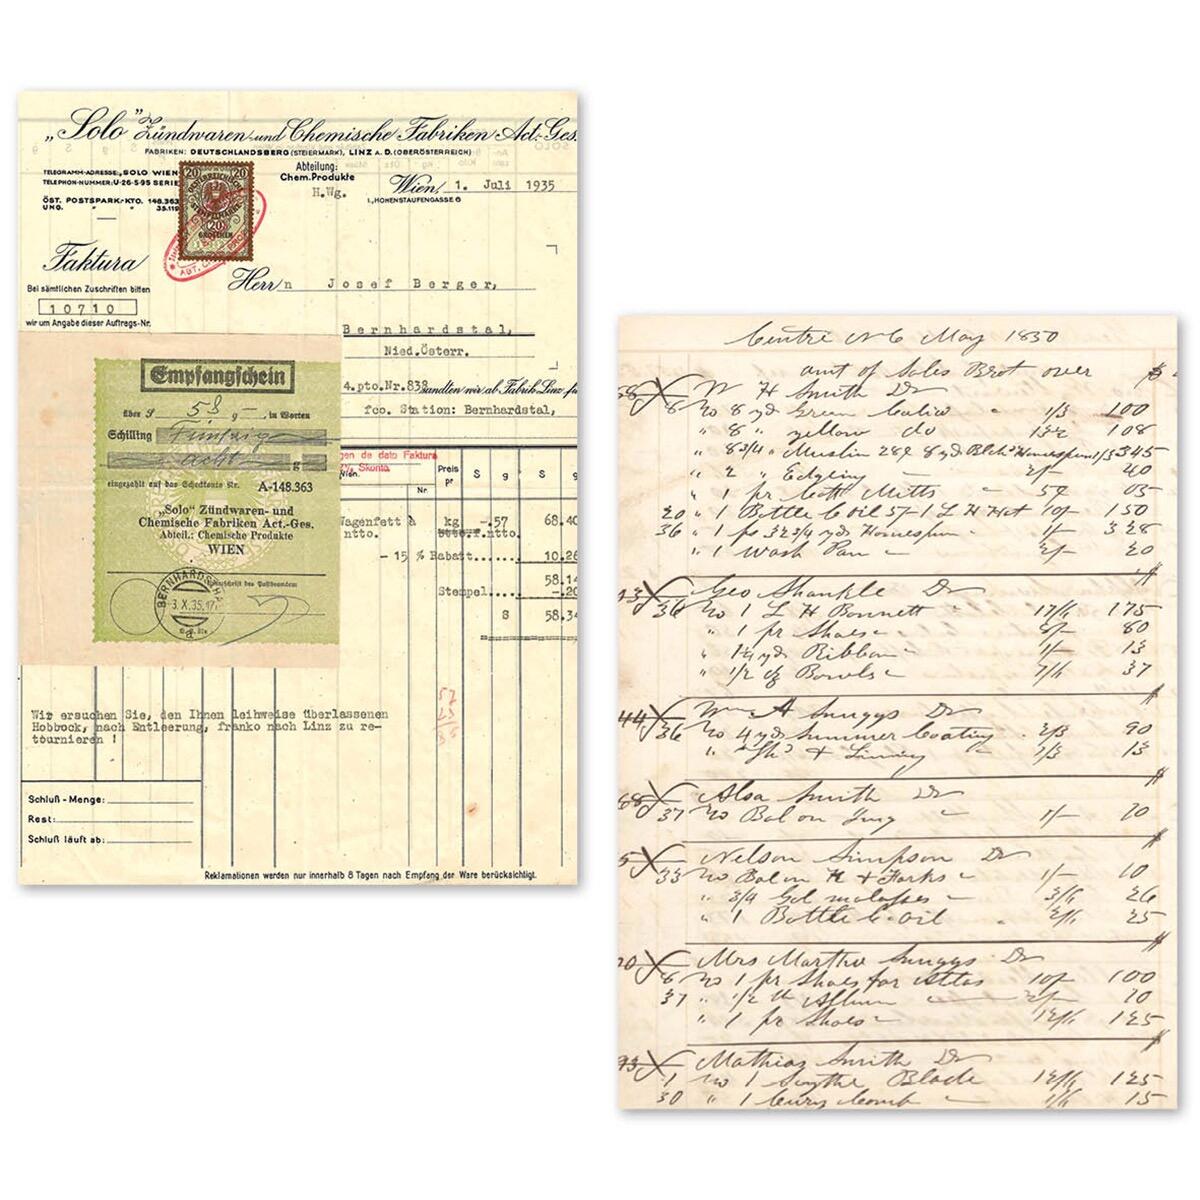 „Solo” Zündwaren und Chemische Fabriken Act.-Ges.
FABRIKEN: DEUTSCHLANDSBERG (STEIERMARK), LINZ A. D. (OBERÖSTERREICH)
TELEGRAMM-ADRESSE: „SOLO WIEN
TELEPHON-NUMMER: U-26-5-95 SERIE
ÖST. POSTSPARK.-KTO. 148.363
UNG. " " 35.119
20 20
(20)
GROSCHEN
Abteilung:
Chem.Produkte
H.Wg.
Wien, 1. Juli 1935
I., HOHENSTAUFENGASSE 6
Faktura
Bei sämtlichen Zuschriften bitten
10710
wir um Angabe dieser Auftrags-Nr.
Herrn Josef Berger,
Bernhardstal,
Nied.Österr.
4.pto.Nr.838 sandten wir ab Fabrik Linz
fco. Station: Bernhardstal,
Empfangschein
über S 58,- , in Worten
Schilling Fünfzig
acht g
eingezahlt auf das Scheckkonto Nr. A-148.363
„Solo" Zündwaren- und
Chemische Fabriken Act.-Ges.
Abteil.: Chemische Produkte
WIEN
Unterschrift des Postbeamten
BERNHARDSTHAL
3.X.35.17
gen de dato Faktura
Skonto.
Preis
pr S g S g
Nr.
Wagenfett à kg -.57 68.40
ntto. btto.f.ntto.
- 15 % Rabatt...... 10.26
58.14
Stempel.... -.20
S 58.34
Wir ersuchen Sie, den Ihnen leihweise überlassenen
Hobbock, nach Entleerung, franko nach Linz zu re-
tournieren !
Schluß - Menge:
Rest:
Schluß läuft ab:
Reklamationen werden nur innerhalb 8 Tagen nach Empfang der Ware berücksichtigt.
Centre N C May 1850
amt of Sales Brot over $
58 W H Smith Dr
8 To 8 yd Green Calico 1/3 100
" 8 " yellow do 13½ 108
" 8 3/4 " Muslin 28¢ 8 yd Blch Homespun 1/3 345
" 2 " Edgeing 2/- 40
" 1 pr Cott Mitts 5¢ 05
20 " 1 Bottle C oil 5/- 1 L H Hat 10/- 150
36 " 1 ps 32 3/4 yds Homespun 1/- 328
" 1 Wash Pan 2/- 20
13 Geo Shankle Dr $
36 To 1 L H Bonnett 17/6 175
" 1 pr Shoes 8/- 80
" 1¼ yds Ribbon 1/- 13
" 1/2 dz Bowls 7/6 37
44 Wm A Snuggs Dr $
36 To 4 yds Summer Coating 2/3 90
" Thd & Lining 1/3 13
68 Alsa Smith Dr $
37 To Bal on Jug 1/- 10
5 Nelson Simpson Dr $
33 To Bal on K & Forks 1/- 10
" 3/4 Gal molasses 3/6 26
" 1 Bottle C. Oil 2/6 25
70 Mrs Martha Snuggs Dr $
6 To 1 pr Shoes for 10/- 100
37 " 1/2 lb Allum 2/- 10
" 1 pr Shoes 12/6 125
73 Mathias Smith Dr $
1 To 1 Scythe Blade 12/6 125
30 " 1 Curry Comb 1/6 15